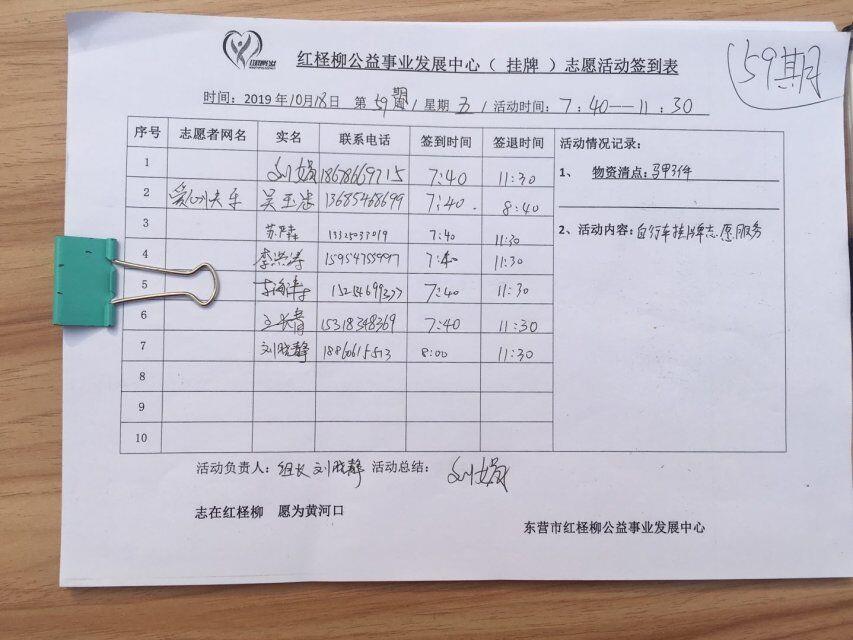 159期
红柽柳公益事业发展中心（ 挂牌 ）志愿活动签到表
时间：2019年10月18日 第 59期 / 星期 五 / 活动时间：7:40—11:30
序号 志愿者网名 实名 联系电话 签到时间 签退时间 活动情况记录：
1 刘娟 18678669715 7:40 11:30
1、 物资清点：马甲3件
2 爱心列车 吴玉洁 13685468699 7:40 8:40
3 13325033019 7:40 11:30
2、活动内容：自行车挂牌志愿服务
4 李洪涛 15954755997 7:40 11:30
5 7:40 11:30
6 王长青 15318348369 7:40 11:30
7 刘晓静 18860615513 8:00 11:30
8
9
10
活动负责人：组长 刘晓静 活动总结： 刘娟
志在红柽柳 愿为黄河口
东营市红柽柳公益事业发展中心